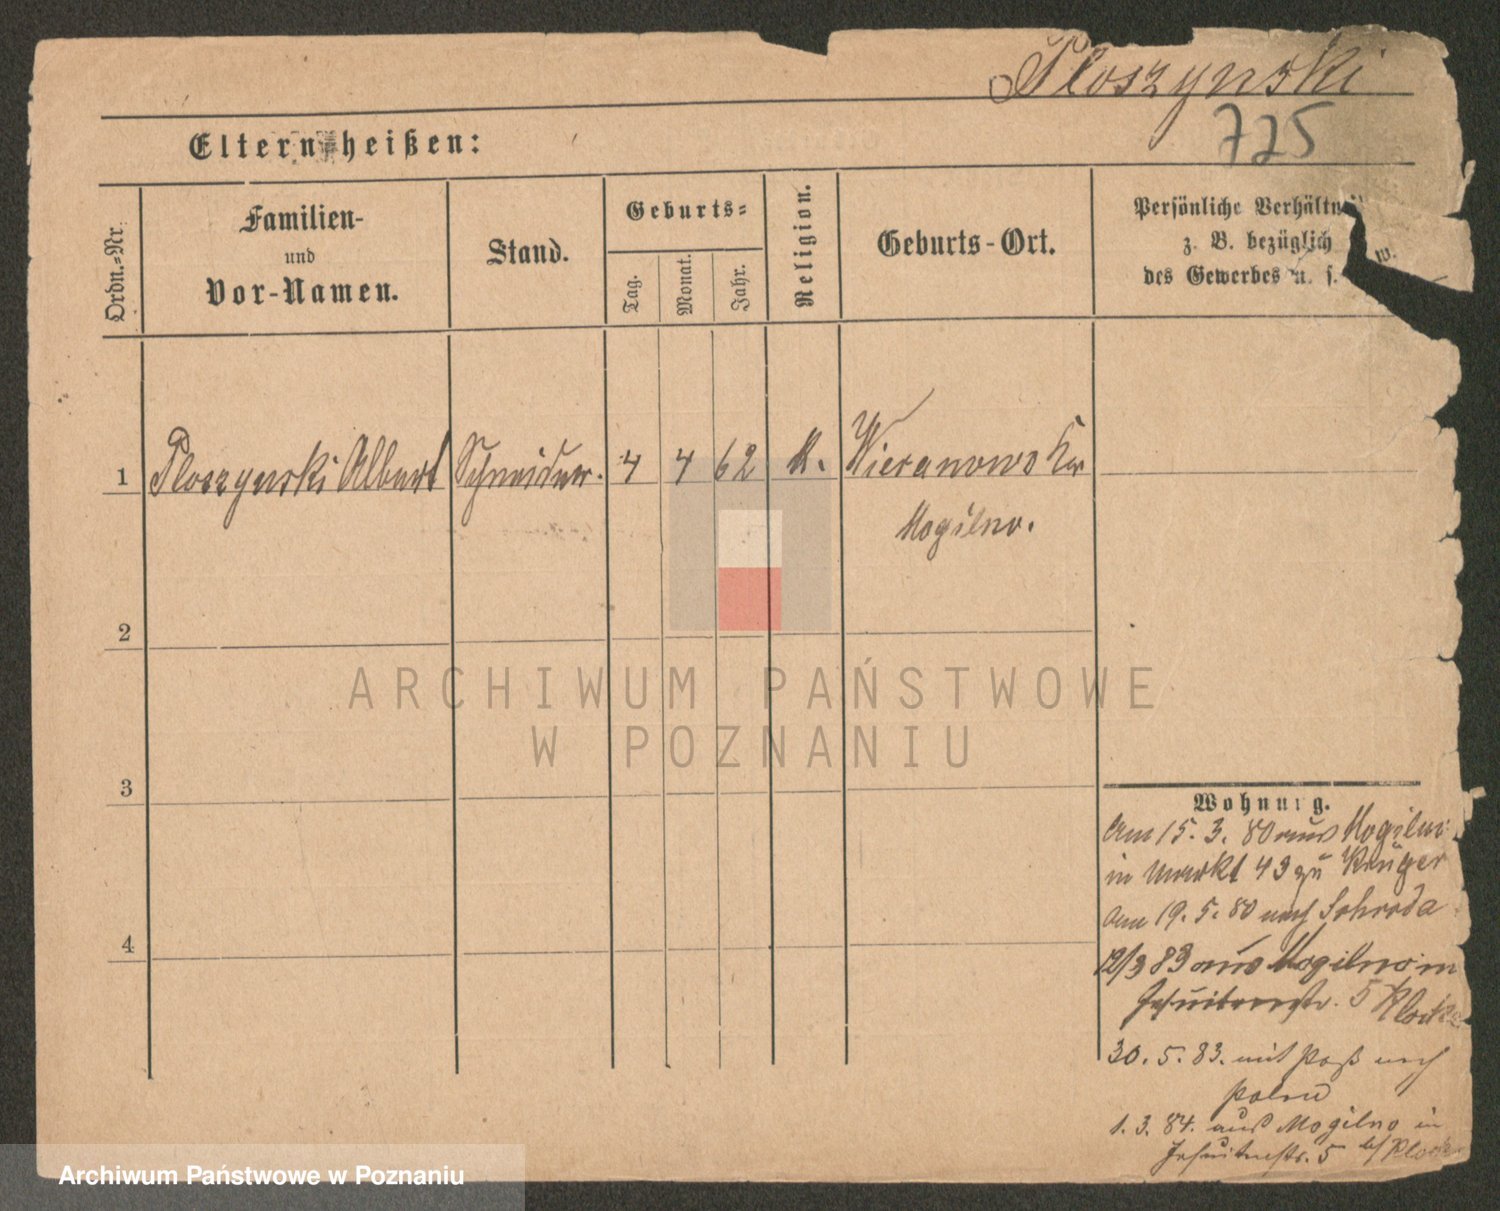 Ploszynski
725
Eltern heißen:
Ordn.-Nr.
Familien-
und
Vor-Namen.
Stand.
Geburts-
Tag.
Monat.
Jahr.
Religion.
Geburts-Ort.
Persönliche Verhältn
z. B. bezüglich
des Gewerbes u. s. w.
1 Ploszynski Albert Schneider. 4 4 62 K. Wieranowo Kr
Mogilno.
2
3
4
Wohnung.
Am 15. 3. 80 aus Mogilno
in Markt 43 zu Krüger
Am 19. 5. 80 nach Schroda
12/3 83 aus Mogilno in
Jesuitenstr. 5
30. 5. 83. mit Paß nach
Polen
1. 3. 84. aus Mogilno in
Jesuitenstr. 5 b/
ARCHIWUM PAŃSTWOWE
W POZNANIU
Archiwum Państwowe w Poznaniu